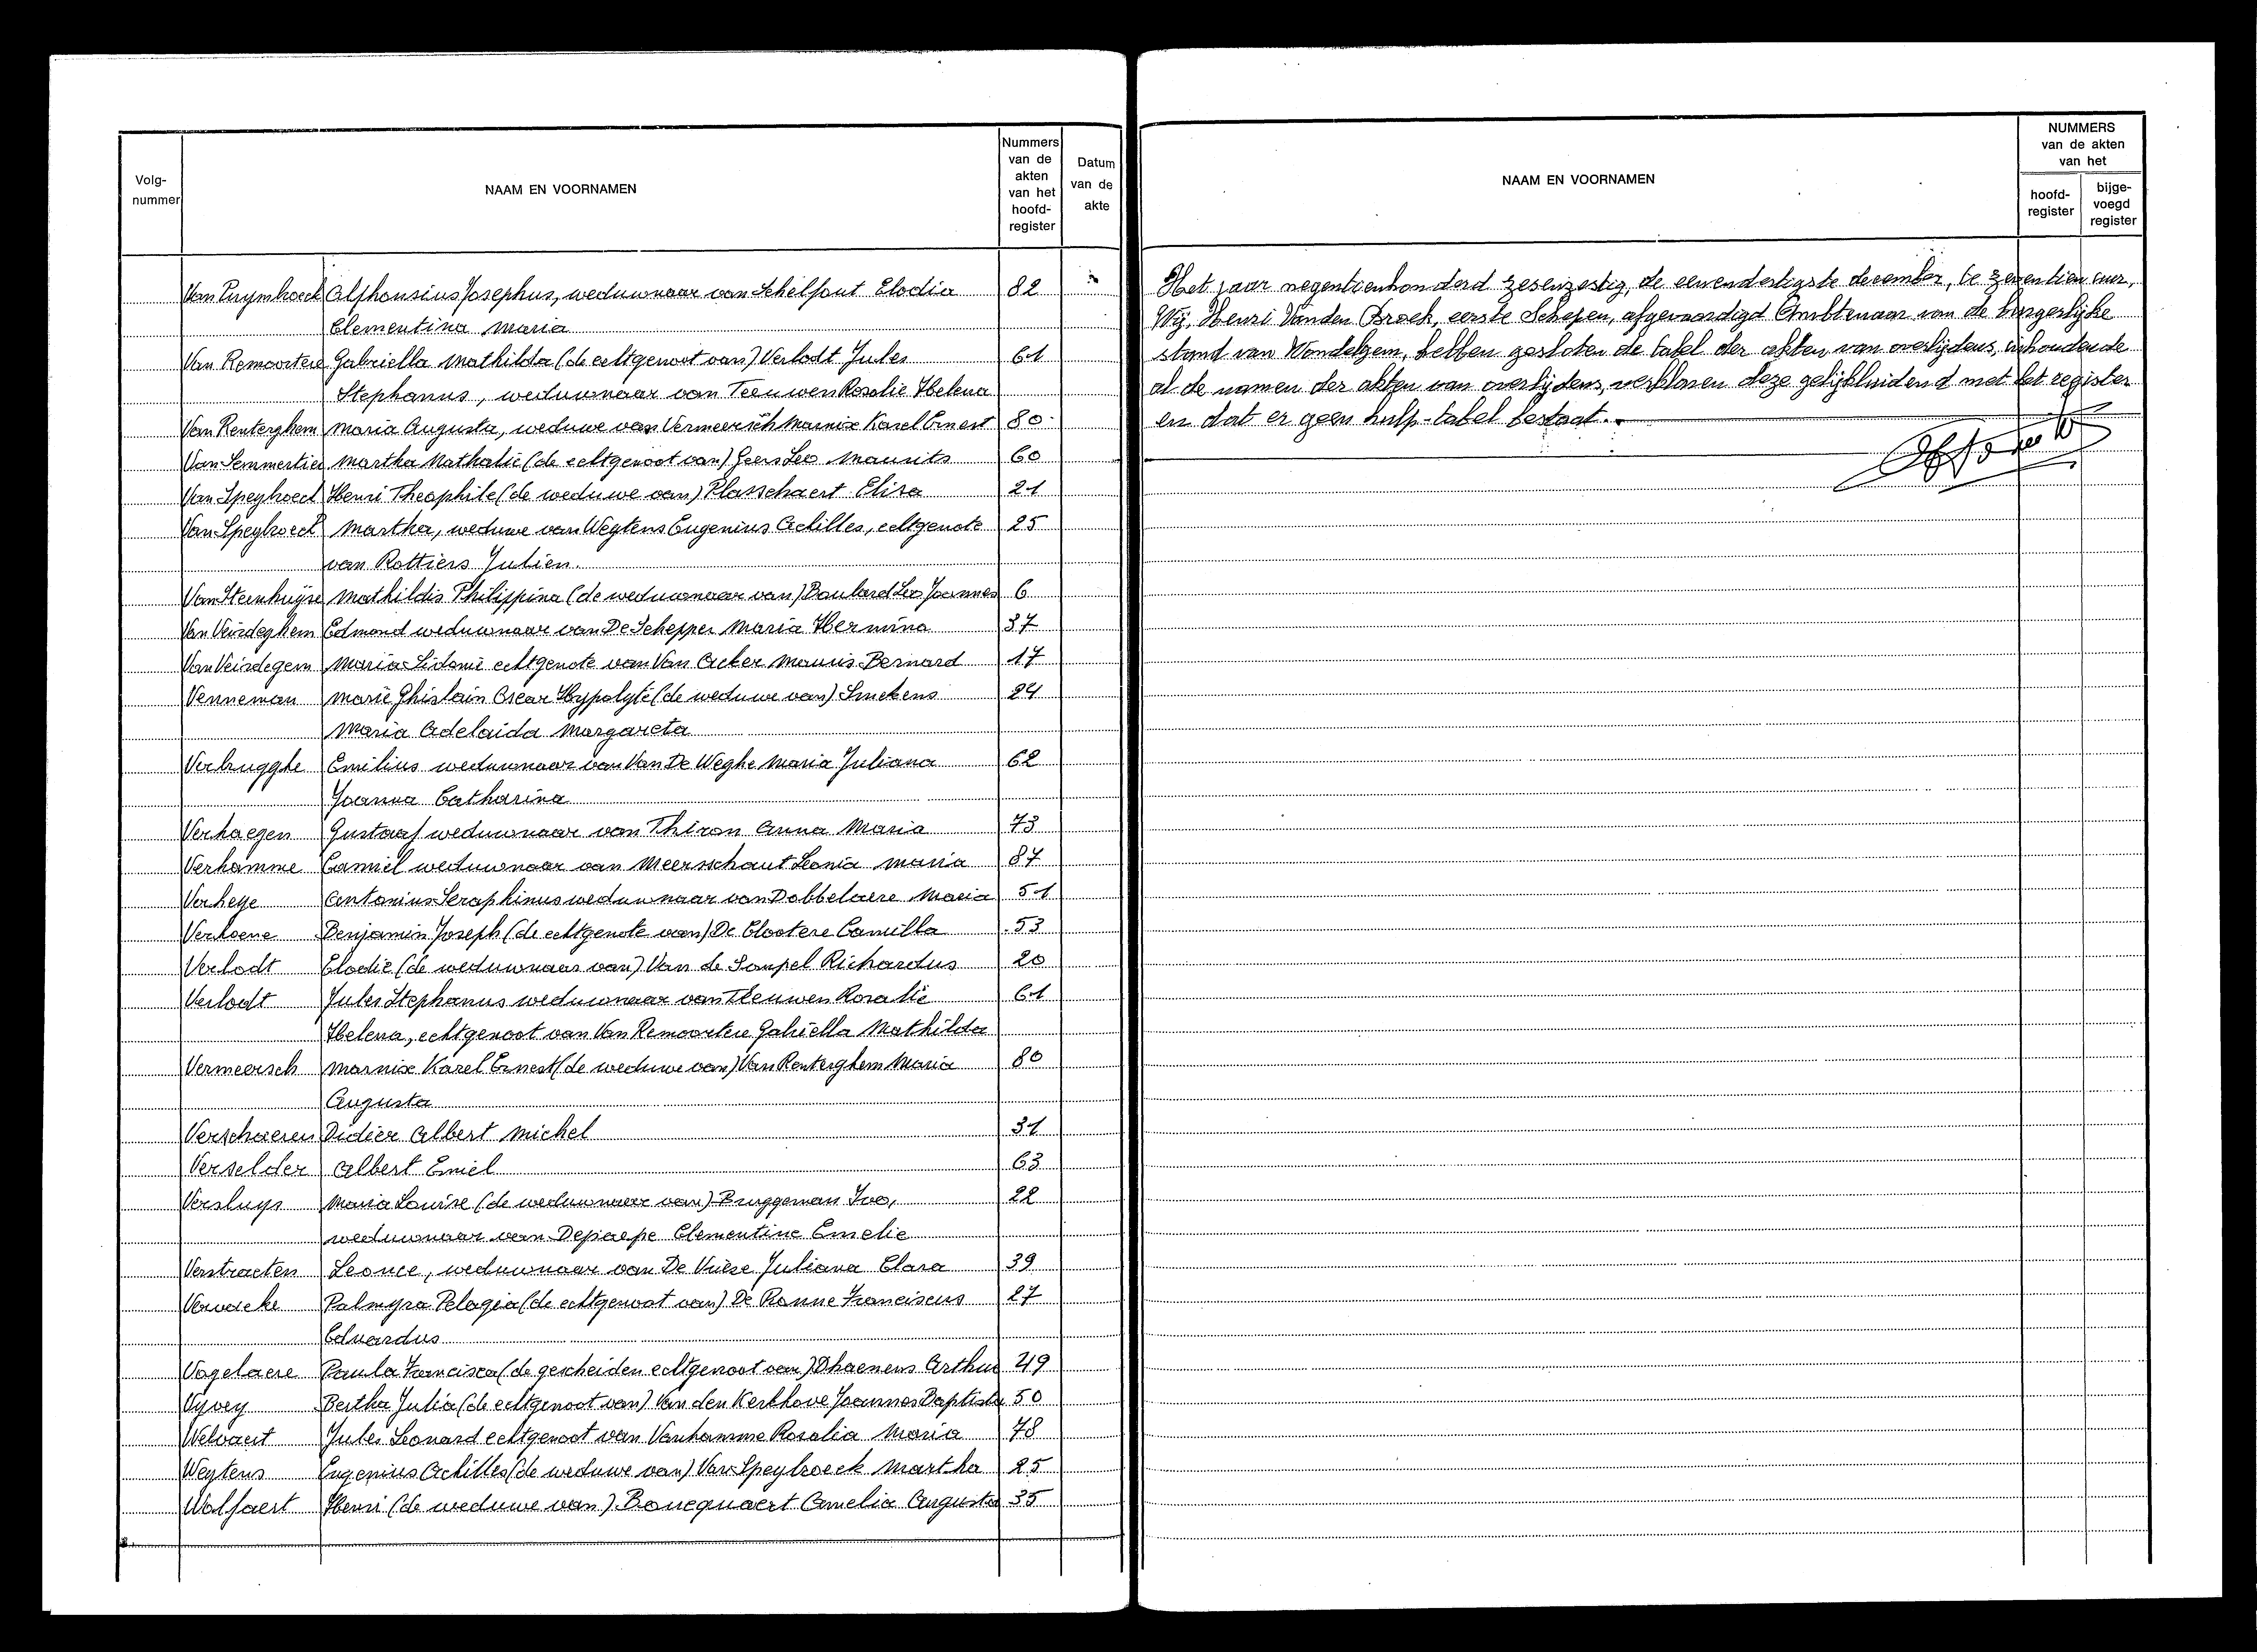 Volg-
nummer
NAAM EN VOORNAMEN
Nummers
van de
akten
van het
hoofd-
register
Datum
van de
akte
Van Puymbroeck Alphonsius Josephus, weduwnaar van Schelfout Elodia 82
Clementina Maria
Van Remoortere Gabriella Mathilda (de echtgenoot van) Verlodt Jules 61
Stephanus, weduwnaar van Teeuwen Rosalie Helena
Van Renterghem Maria Augusta, weduwe van Vermeersch Marnix Karel Ernest 80
Van Semmertier Martha Nathalie (de echtgenoot van) Geers Leo Maurits 60
Van Speybroeck Henri Theophile (de weduwe van) Plasschaert Elisa 21
Van Speybroeck Martha, weduwe van Weytens Eugenius Achilles, echtgenote 25
van Rottiers Julien.
Van Steenhuyse Mathildis Philippina (de weduwnaar van) Baulard Leo Joannes 6
Van Veirdeghem Edmond weduwnaar van De Schepper Maria Hermina 37
Van Veirdegem Maria-Sidonie echtgenote van Van Acker Mauris Bernard 17
Venneman Marie Ghislain Oscar Hypolyte (de weduwe van) Smekens 24
Maria Adelaida Margareta
Verbrugghe Emilius weduwnaar van Van De Weghe Maria Juliana 62
Joanna Catharina
Verhaegen Gustaaf weduwnaar van Thiron Anna Maria 73
Verhamme Camiel weduwnaar van Meersschaut Leonia Maria 87
Verheye Antonius Seraphinus weduwnaar van Dobbelaere Maria 51
Verhoene Benjamin Joseph (de echtgenote van) De Clootere Camilla 53
Verlodt Elodie (de weduwnaar van) Van de Sompel Richardus 20
Verlodt Jules Stephanus weduwnaar van Teeuwen Rosalie 61
Helena, echtgenoot van Van Remoortere Gabriella Mathilda
Vermeersch Marnix Karel Ernest (de weduwe van) Van Renterghem Maria 80
Augusta
Verschaeren Didier Albert Michel 31
Verselder Albert Emiel 63
Versluys Maria Louise (de weduwnaar van) Bruggeman Ivo, 22
weduwnaar van Depaepe Clementine Emelie
Verstraeten Leonce, weduwnaar van De Vriese Juliana Clara 39
Vervaecke Palmyra Pelagia (de echtgenoot van) De Ronne Franciscus 27
Eduardus
Vogelaere Paula Francisca (de gescheiden echtgenoot van) Dhaenens Arthur 49
Vyvey Bertha Julia (de echtgenoot van) Van den Kerkhove Joannes Baptista 50
Welvaert Jules Leonard echtgenoot van Vanhamme Rosalia Maria 78
Weytens Eugenius Achilles (de weduwe van) Van Speybroeck Martha 25
Wolfaert Henri (de weduwe van) Boucquaert Amelia Augusta 35
NAAM EN VOORNAMEN
NUMMERS
van de akten
van het
hoofd-
register
bijge-
voegd
register
Het jaar negentienhonderd zesenzestig, de eenendertigste december, te zeventien uur,
Wij, Henri Vanden Broeck, eerste Schepen, afgevaardigd Ambtenaar van de burgerlijke
stand van Wondelgem, hebben gesloten de tafel der akten van overlijdens, inhoudende
al de namen der akten van overlijdens, verklaren deze gelijkluidend met het register
en dat er geen hulp-tabel bestaat.